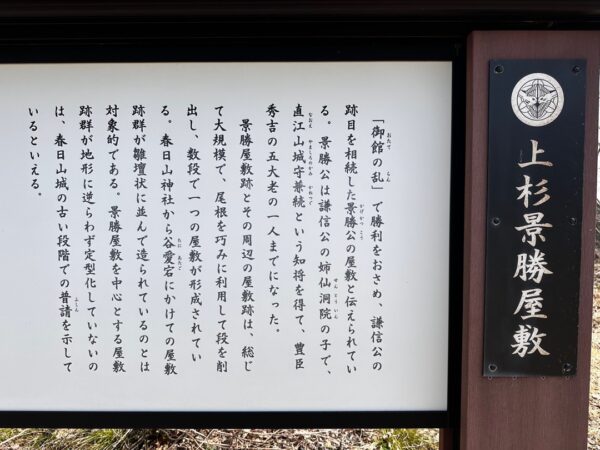 上杉景勝屋敷
「御館の乱」で勝利をおさめ、謙信公の
跡目を相続した景勝公の屋敷と伝えられてい
る。景勝公は謙信公の姉仙洞院の子で、
直江山城守兼続という知将を得て、豊臣
秀吉の五大老の一人までになった。
景勝屋敷跡とその周辺の屋敷跡は、総じ
て大規模で、尾根を巧みに利用して段を削
出し、数段で一つの屋敷が形成されてい
る。春日山神社から谷愛宕にかけての屋敷
跡群が雛壇状に並んで造られているのとは
対象的である。景勝屋敷を中心とする屋敷
跡群が地形に逆らわず定型化していないの
は、春日山城の古い段階での普請を示して
いるといえる。